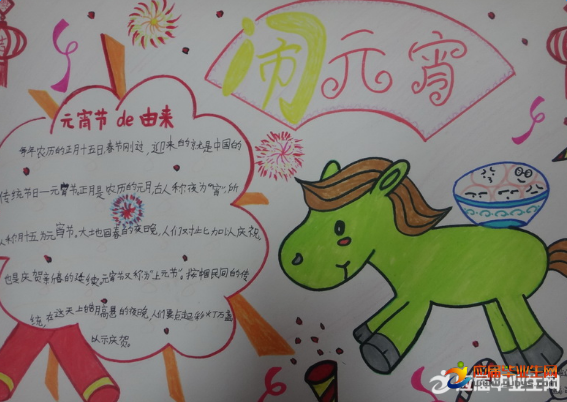 闹元宵
元宵节de由来
每年农历的正月十五日,春节刚过,迎来的就是中国的
传统节日一元宵节正月是农历的元月,古人称夜为"宵",所
以称月十五为元宵节,大地回春的夜晚,人们对此加以庆祝,
也是庆贺新春的延续,元宵节又称为"上元节",按中国民间的传
统,在这天上皓月高悬的夜晚,人们要点起彩灯万盏
以示庆祝
应届毕业生网